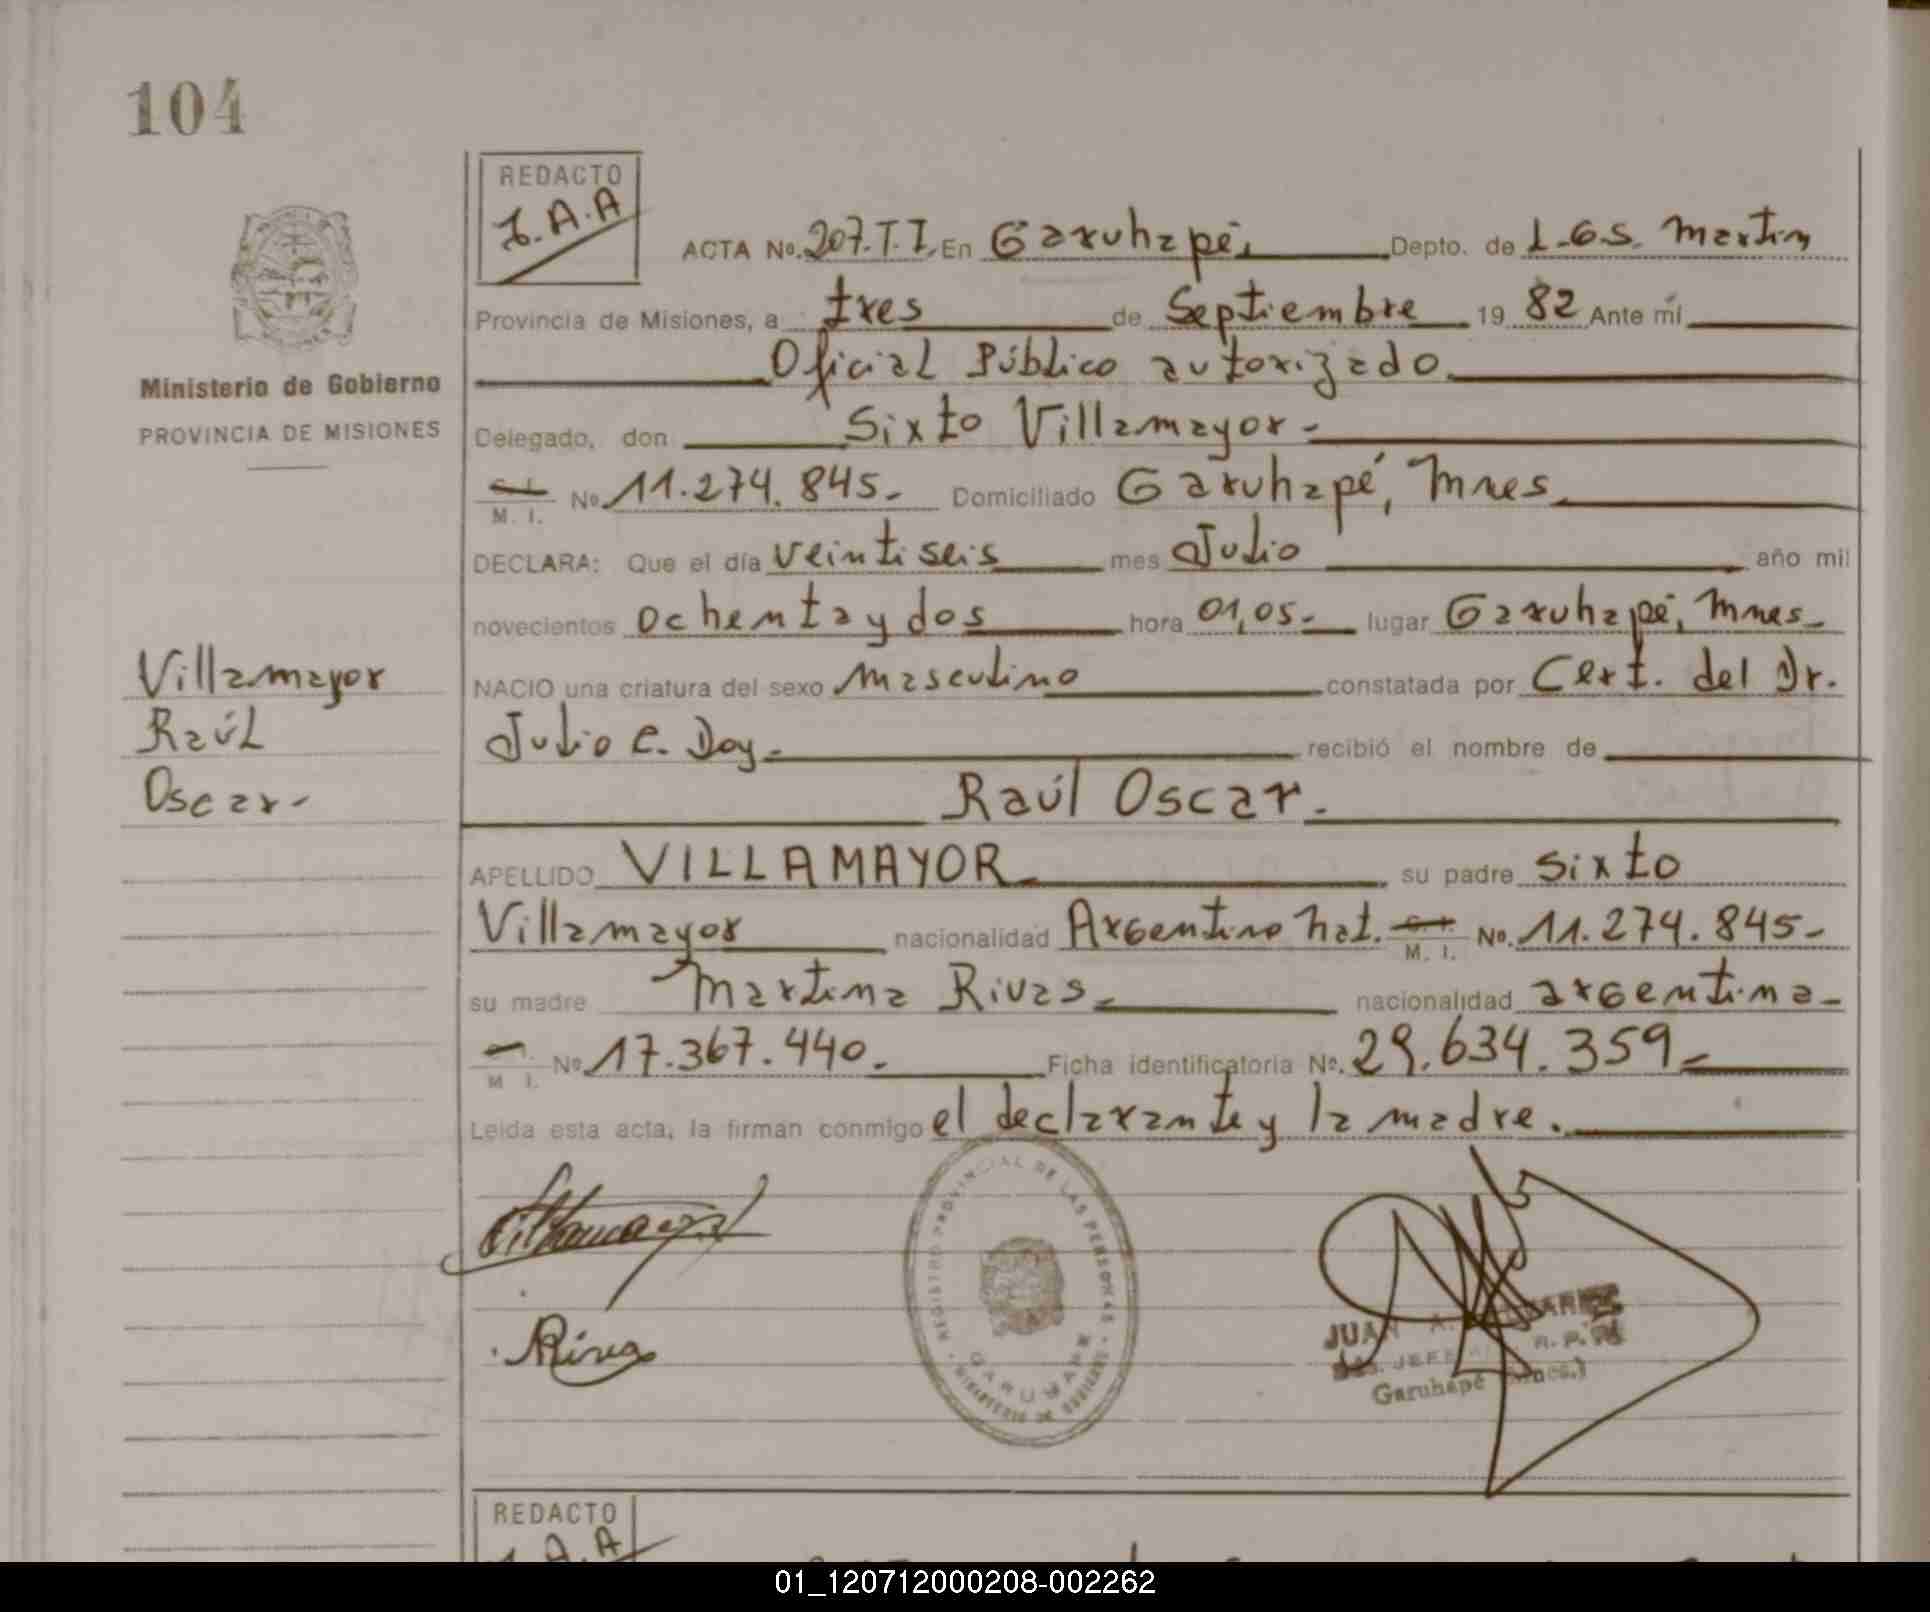 104
REDACTO
J.A.A
ACTA No. 207.T.I. En Garuhapé, Depto. de L.G.S. Martin
Provincia de Misiones, a tres de Septiembre 19 82 Ante mí
Oficial Público autorizado
Ministerio de Gobierno
PROVINCIA DE MISIONES
Delegado, don Sixto Villamayor-
C. I. M. I. No 11.274.845.- Domiciliado Garuhapé, Mnes.
DECLARA: Que el día veintiseis mes Julio año mil
novecientos ochenta y dos hora 01,05.- lugar Garuhapé, Mnes.-
NACIO una criatura del sexo masculino constatada por Cert. del Dr.
Julio C. Doy.- recibió el nombre de
Villamayor
Raúl
Oscar-
Raúl Oscar.-
APELLIDO VILLAMAYOR su padre Sixto
Villamayor nacionalidad Argentino nat. C. I. M. I. No. 11.274.845-
su madre Martina Rivas.- nacionalidad argentina-
M I. No 17.367.440.- Ficha identificatoria No. 29.634.359.-
Leída esta acta, la firman conmigo el declarante y la madre.
Villamayor
Rivas
REGISTRO PROVINCIAL DE LAS PERSONAS
GARUHAPE
MINISTERIO DE GOBIERNO
JUAN A.
JEFE R. P.
Garuhapé (Mnes.)
REDACTO
J.A.A
01_120712000208-002262